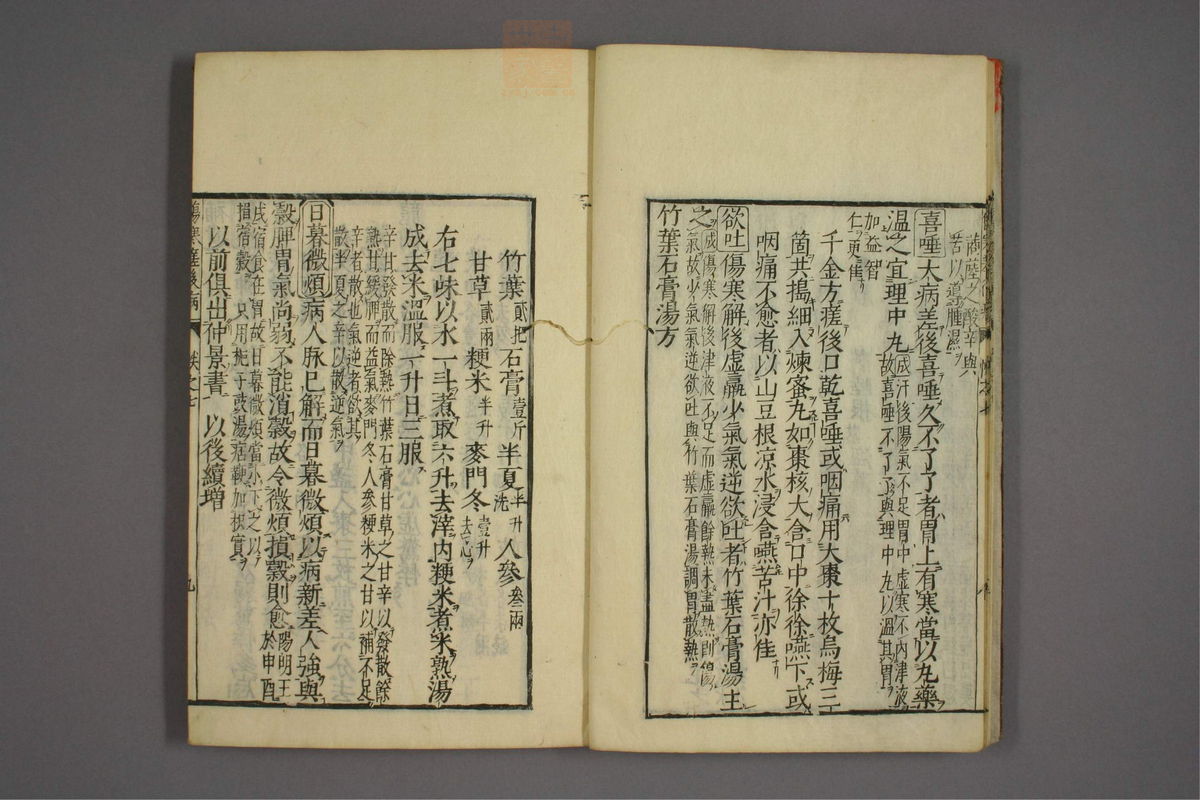 商陸之酸辛與
苦以導腫濕
喜唾大病差後喜唾久不了了者胃上有寒當以丸藥
溫之宜理中丸成汗後陽氣不足胃中虛寒不內津液
故喜唾不了了與理中丸以溫其胃
加益智
仁更佳
千金方瘥後口乾喜唾或咽痛用大棗十枚烏梅三十
箇共搗細入煉蜜丸如棗核大含口中徐徐嚥下或
咽痛不愈者以山豆根凉水浸含嚥苦汁亦佳
欲吐傷寒解後虛羸少氣氣逆欲吐者竹葉石膏湯主
之成傷寒解後津液不足而虛羸餘熱未盡熱則傷
氣故少氣氣逆欲吐與竹葉石膏湯調胃散熱
竹葉石膏湯方
竹葉貳把石膏壹斤半夏半升洗人參叁兩
甘草貳兩粳米半升麥門冬壹升去心
右七味以水一斗煮取六升去滓內粳米煮米熟湯
成去米溫服一升日三服
辛甘發散而除熱竹葉石膏甘草之甘辛以發散餘
熱甘緩脾而益氣麥門冬人參粳米之甘以補不足
辛者散也氣逆者欲其
散半夏之辛以散逆氣
日暮微煩病人脉已解而日暮微煩以病新差人強與
穀脾胃氣尚弱不能消穀故令微煩損穀則愈陽明王於申酉
戌宿食在胃故日暮微煩當小下之以
損宿穀 只用梔子豉湯痞鞕加枳實
以前俱出仲景書 以後續增
九